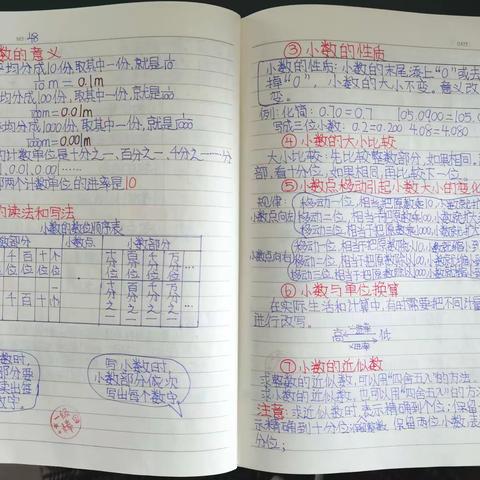 48
数的意义
平均分成10份,取其中一份,就是1/10
1/10m = 0.1m
均分成100份,取其中一份,就是1/100
1/100m = 0.01m
平均分成1000份,取其中一份,就是1/1000
1/1000m = 0.001m
的计数单位是十分之一、百分之一、千分之一……
0.1、0.01、0.001……
两个计数单位的进率是10
的读法和写法
小数的数位顺序表
数部分 小数点 小数部分
千 百 十 个 十 百 千 万
位 位 位 位 分 分 分 分 …
位 位 位 位
一 十 百 千 万
千 百 十 个 分 分 分 分 …
之 之 之 之
一 一 一 一
数时,
部分要
读出每
数字。
写小数时,
小数部分依次
写出每个数字
③小数的性质
小数的性质:小数的末尾添上“0”或去
掉“0”,小数的大小不变。意义改
变。
例:化简:0.70=0.7 105.0900=105.0
写成三位小数:0.2=0.200 4.08=4.080
④小数的大小比较
大小比较:先比较整数部分,如果相同,
部,看十分位,如果相同,再比较下一位。
⑤小数点移动引起小数大小的变化
规律:
小数点向右
小数点向左
⑥小数与单位换算
在实际生活和计算中,有时需要把不同计量
进行改写。
高 低
⑦小数的近似数
求整数的近似数,可以用“四舍五入”的方法。
求小数的近似数,也可以用“四舍五入”的方
注意:求近似数时,表示精确到个位;保留
示精确到十分位;保留两位小数,表
分位;